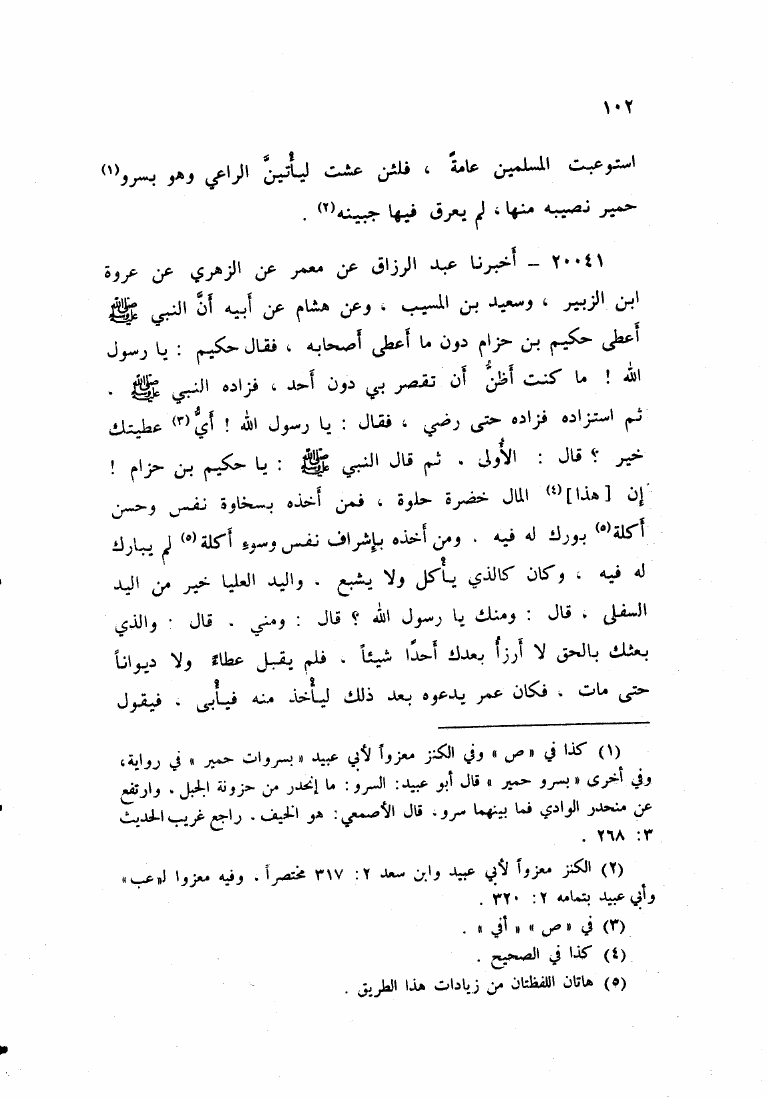 ١٠٢
استوعبت المسلمين عامةً ، فلئن عشت ليأْتينَّ الراعي وهو بسرو(١)
حمير نصيبه منها، لم يعرق فيها جبينه(٢) .
٢٠٠٤١ – أَخبرنا عبد الرزاق عن معمر عن الزهري عن عروة
ابن الزبير ، وسعيد بن المسيب ، وعن هشام عن أَبيه أَنَّ النبي ﷺ
أَعطى حكيم بن حزام دون ما أَعطى أَصحابه ، فقال حكيم : يا رسول
الله ! ما كنت أَظنُّ أَن تقصر بي دون أَحد ، فزاده النبي ﷺ .
ثم استزاده فزاده حتى رضي ، فقال : يا رسول الله ! أَيُّ(٣) عطيتك
خير ؟ قال : الأُولى . ثم قال النبي ﷺ : يا حكيم بن حزام !
إن [هذا](٤) المال خضرة حلوة ، فمن أَخذه بسخاوة نفس وحسن
أَكلة(٥) بورك له فيه . ومن أَخذه بإشراف نفس وسوءِ أَكلة(٥) لم يبارك
له فيه ، وكان كالذي يأْكل ولا يشبع . واليد العليا خير من اليد
السفلى ، قال : ومنك يا رسول الله ؟ قال : ومني . قال : والذي
بعثك بالحق لا أَرزأُ بعدك أَحدًا شيئاً . فلم يقبل عطاءً ولا ديواناً
حتى مات . فكان عمر يدعوه بعد ذلك ليأْخذ منه فيأْبى ، فيقول
(١) كذا في «ص» وفي الكنز معزواً لأبي عبيد «بسروات حمير» في رواية،
وفي أخرى «بسرو حمير» قال أبو عبيد: السرو: ما إنحدر من حزونة الجبل . وارتفع
عن منحدر الوادي فما بينهما سرو. قال الأصمعي: هو الخيف. راجع غريب الحديث
٣: ٢٦٨ .
(٢) الكنز معزواً لأبي عبيد وابن سعد ٢: ٣١٧ مختصراً . وفيه معزوا لـ«عب»
وأبي عبيد بتمامه ٢: ٣٢٠ .
(٣) في «ص» «أفي» .
(٤) كذا في الصحيح .
(٥) هاتان اللفظتان من زيادات هذا الطريق .